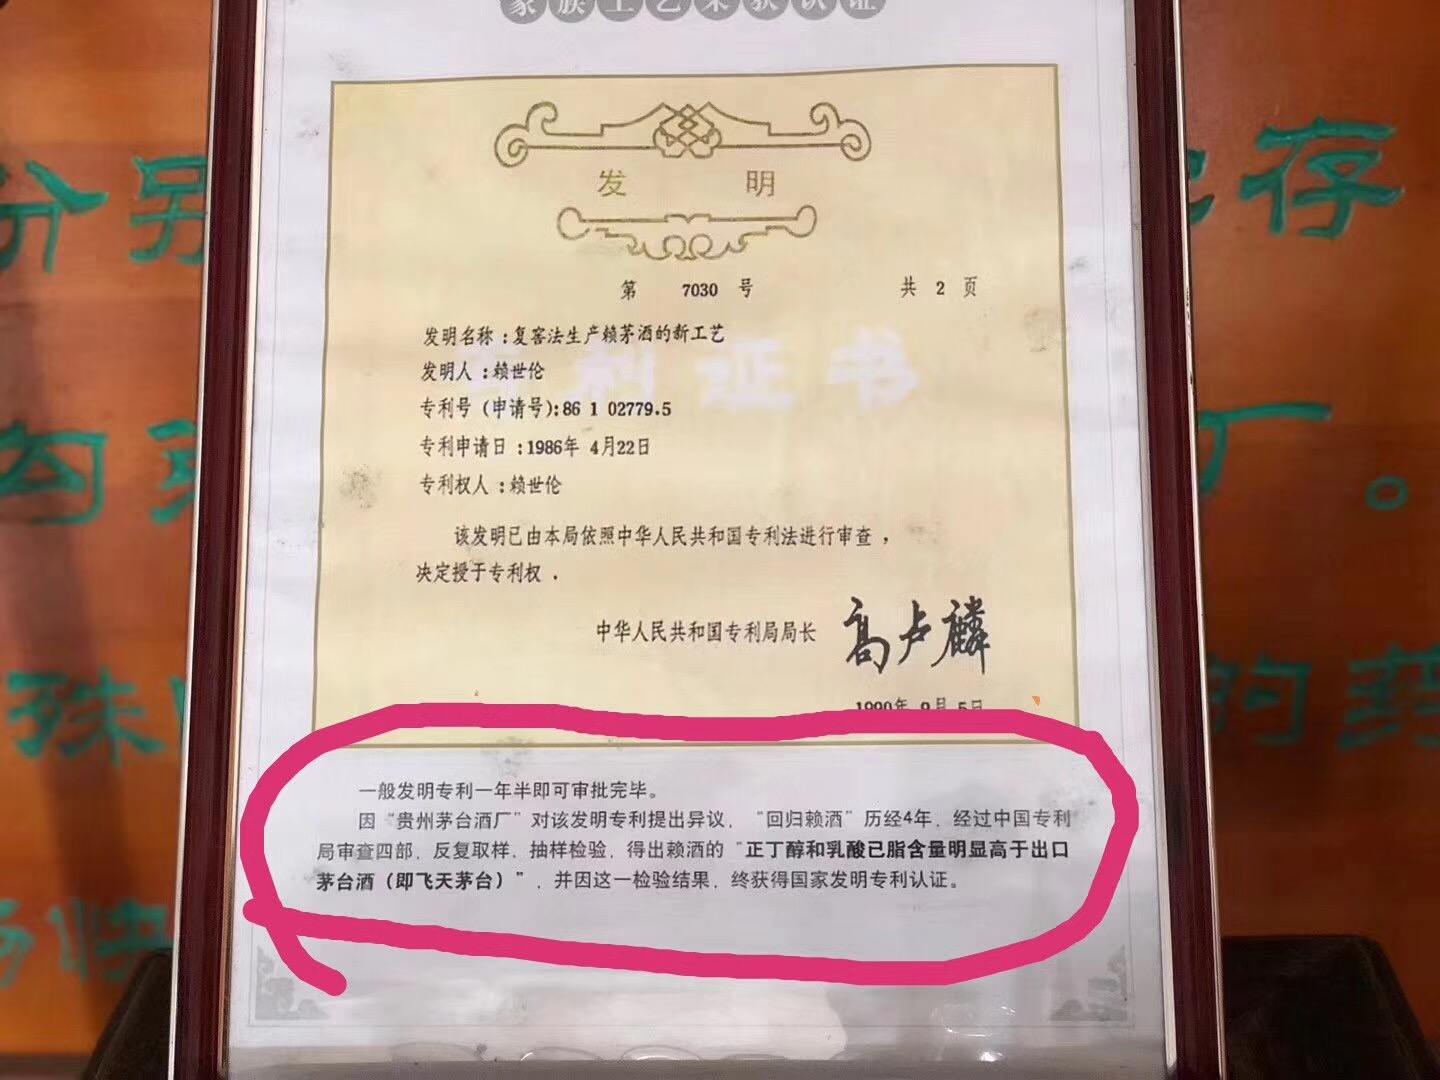 家族工艺荣获认证
发 明
第 7030 号 共 2 页
专利证书
发明名称:复窖法生产赖茅酒的新工艺
发明人:赖世伦
专利号(申请号):86 1 02779.5
专利申请日:1986年 4月22日
专利权人:赖世伦
该发明已由本局依照中华人民共和国专利法进行审查,
决定授于专利权.
中华人民共和国专利局局长 高卢麟
1990年 9月 5日
一般发明专利一年半即可审批完毕。
因“贵州茅台酒厂”对该发明专利提出异议,“回归赖酒”历经4年,经过中国专利
局审查四部,反复取样,抽样检验,得出赖酒的“正丁醇和乳酸已脂含量明显高于出口
茅台酒(即飞天茅台)”,并因这一检验结果,终获得国家发明专利认证。
分别
存
厂。
殊
的药